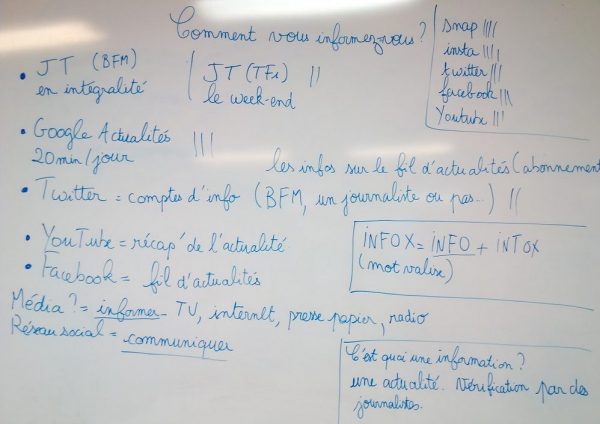 Comment vous informez-vous ?
snap ||||
insta ||||
twitter |||
facebook |||
Youtube |||
• JT (BFM)
en intégralité
JT (TF1) ||
le week-end
• Google Actualités |||
20min/jour
les infos sur le fil d'actualités (abonnement
• Twitter = comptes d'info (BFM, un journaliste ou pas...) ||
• YouTube = récap' de l'actualité
• Facebook = fil d'actualités
INFOX = INFO + INTOX
(mot valise)
Média ? = informer - TV, internet, presse papier, radio
Réseau social = communiquer
C'est quoi une information ?
une actualité. Vérification par des
journalistes.